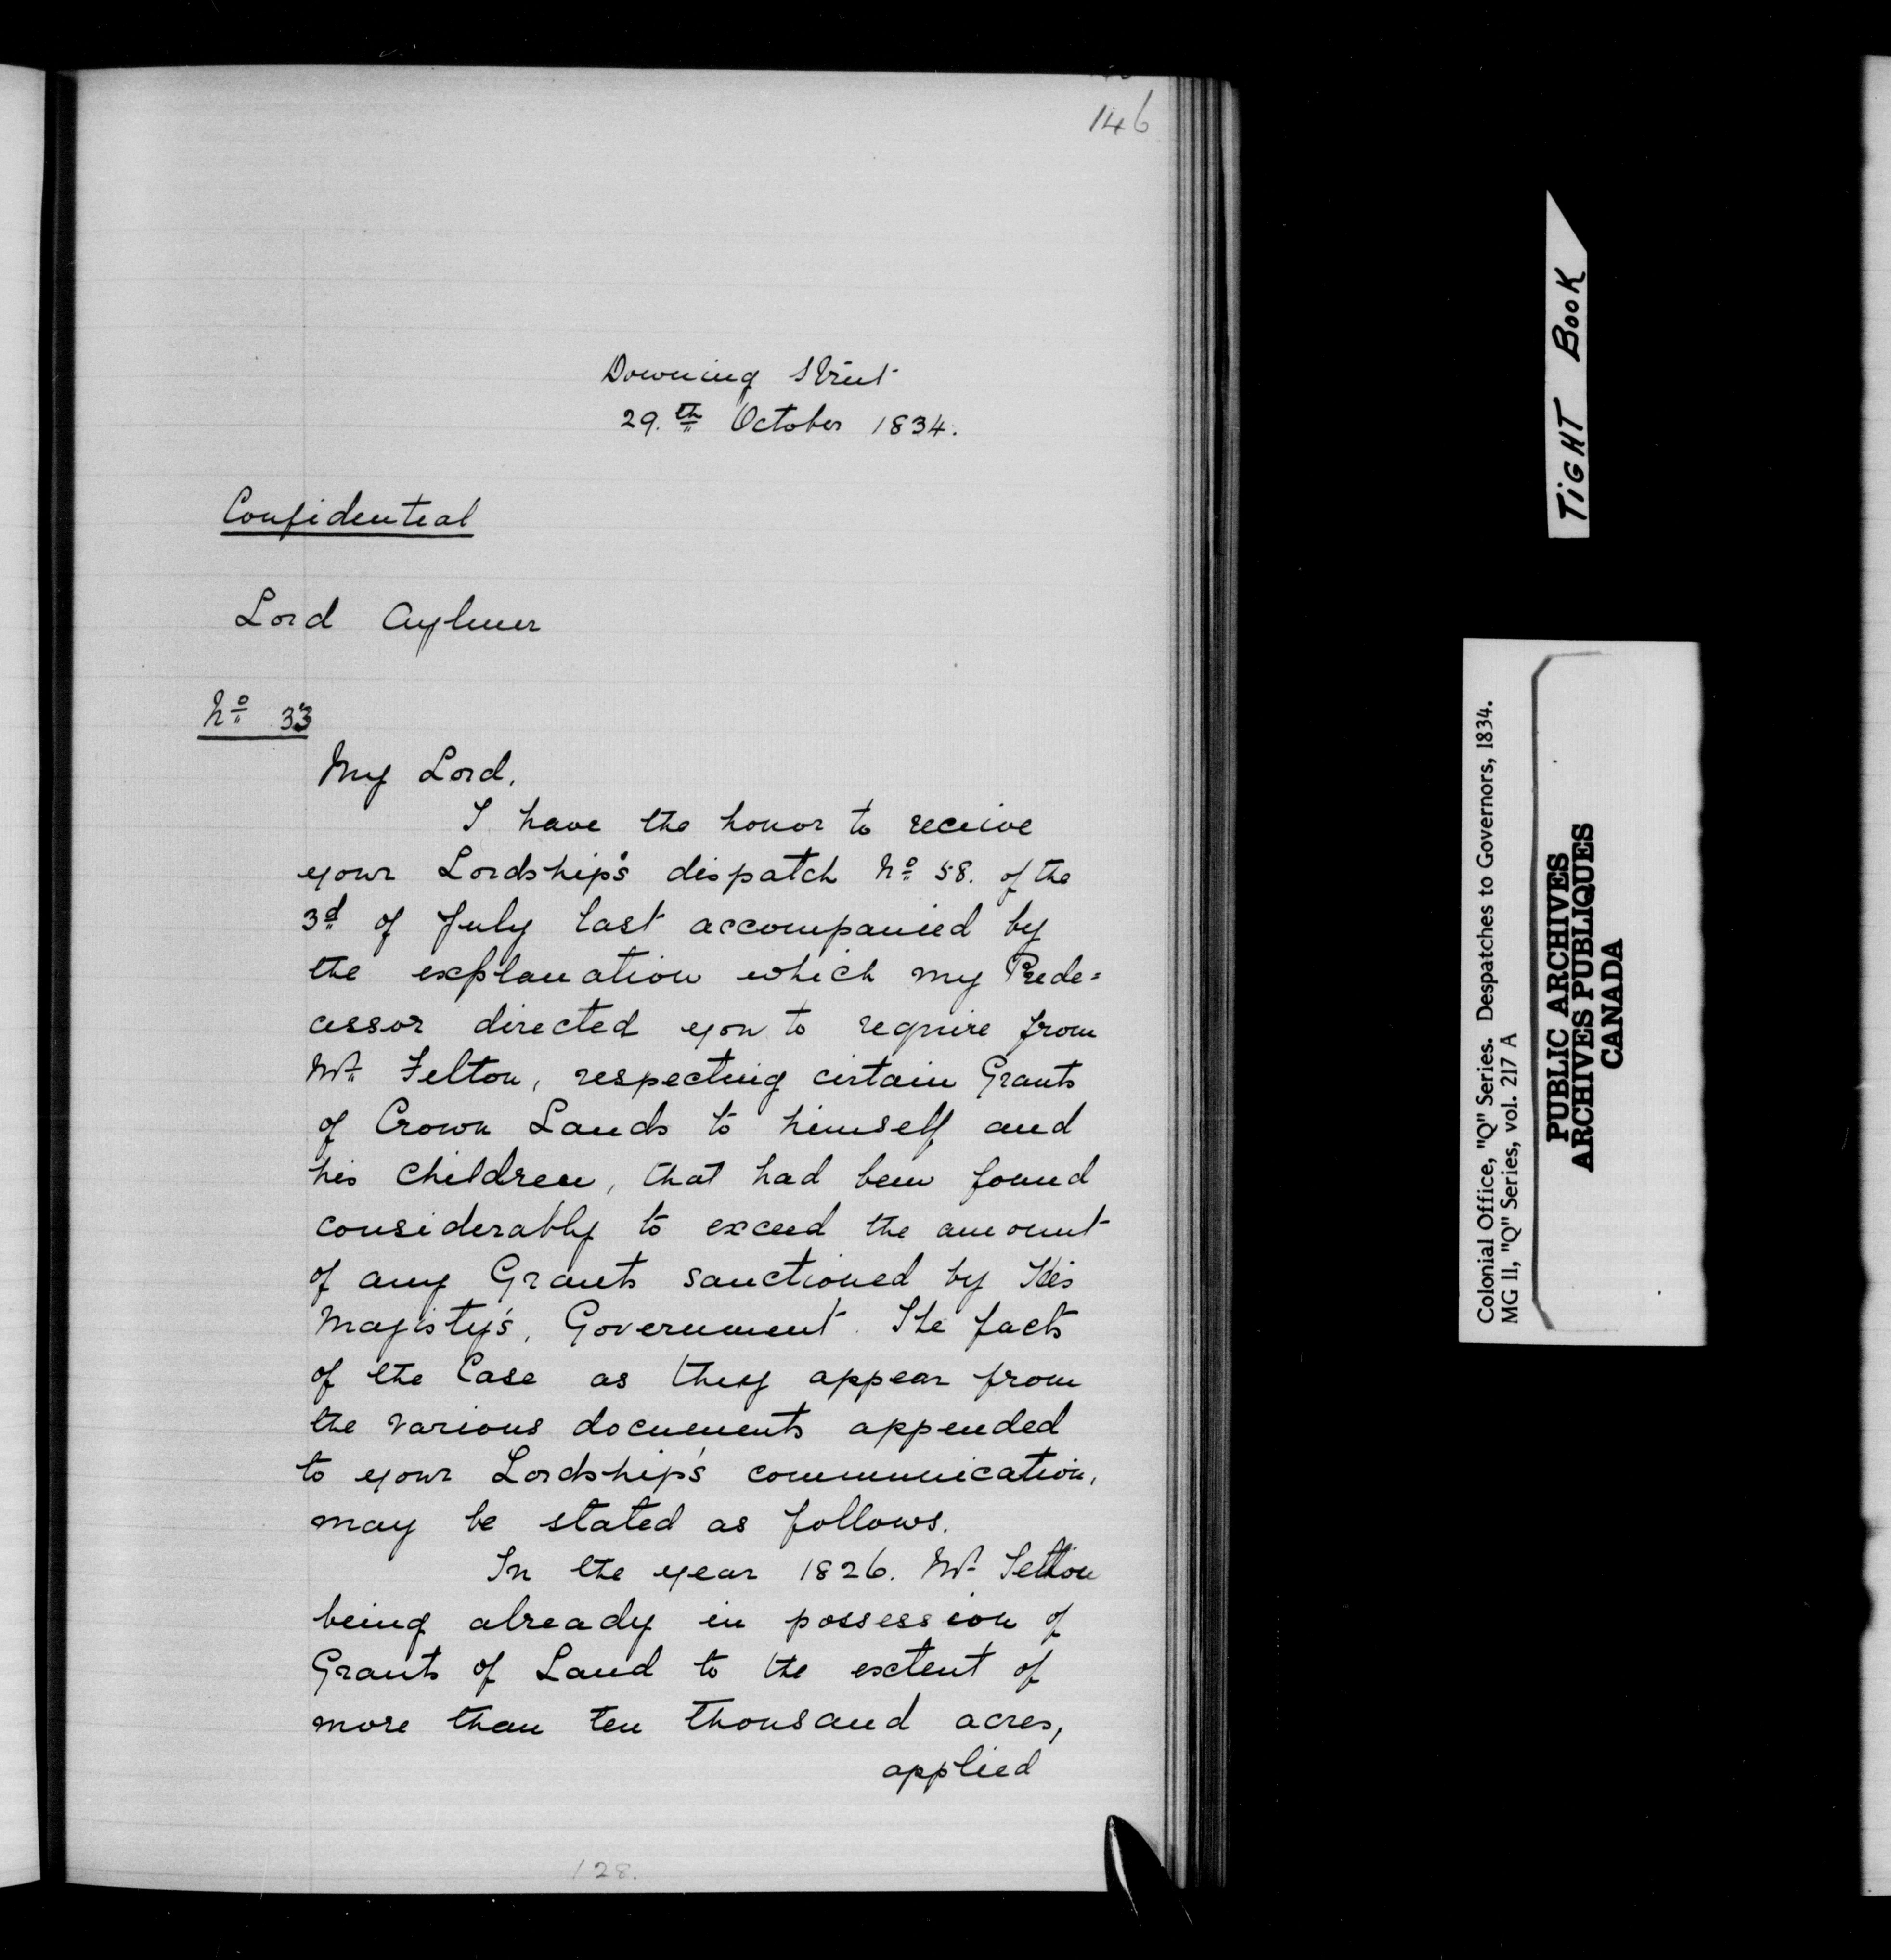 146
Downing Street
29.th October 1834.
Confidential
Lord Aylmer
No 33
My Lord,
I have the honor to receive
your Lordship's dispatch No 58. of the
3d of July last accompanied by
the explanation which my Prede=
cessor directed you to require from
Mr. Felton, respecting certain Grants
of Crown Lands to himself and
his Children, that had been found
considerably to exceed the amount
of any Grants sanctioned by His
Majisty's, Government. The facts
of the Case as they appear from
the various documents appended
to your Lordship's communication,
may be stated as follows.
In the year 1826. Mr Felton
being already in possession of
Grants of Land to the extent of
more than ten thousand acres,
applied
128.
TIGHT BOOK
Colonial Office, "Q" Series. Despatches to Governors, 1834.
MG 11, "Q" Series, vol. 217 A
PUBLIC ARCHIVES
ARCHIVES PUBLIQUES
CANADA